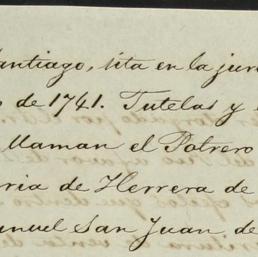 Santiago, sita en la jur
de 1741. Tutelas y
llaman el Potrero
ria de Herrera de
nuel San Juan, de